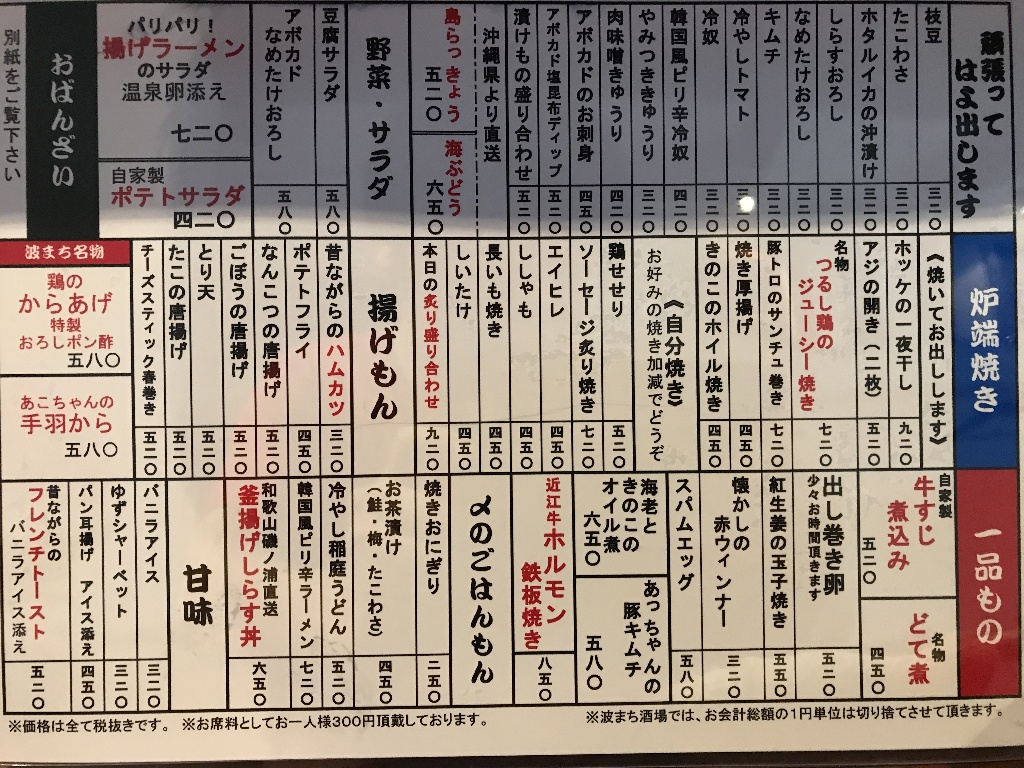 頑張って
はよ出します
枝豆
三二〇
たこわさ
三二〇
ホタルイカの沖漬け
三二〇
しらすおろし
三二〇
なめたけおろし
三二〇
キムチ
三二〇
冷やしトマト
三二〇
冷奴
三二〇
韓国風ピリ辛冷奴
四二〇
やみつききゅうり
三二〇
肉味噌きゅうり
四二〇
アボカドのお刺身
四五〇
アボカド塩昆布ディップ
五二〇
漬けもの盛り合わせ
五二〇
沖縄県より直送
島らっきょう
五二〇
海ぶどう
六五〇
野菜・サラダ
豆腐サラダ
五八〇
アボカド
なめたけおろし
五八〇
パリパリ！
揚げラーメン
のサラダ
温泉卵添え
七二〇
自家製
ポテトサラダ
四二〇
おばんざい
別紙をご覧下さい
炉端焼き
《焼いてお出しします》
ホッケの一夜干し
九二〇
アジの開き（二枚）
五二〇
名物
つるし鶏の
ジューシー焼き
七二〇
豚トロのサンチュ巻き
七二〇
焼き厚揚げ
四五〇
きのこのホイル焼き
四五〇
《自分焼き》
お好みの焼き加減でどうぞ
鶏せせり
五二〇
ソーセージ炙り焼き
七二〇
エイヒレ
四五〇
ししゃも
四五〇
長いも焼き
四五〇
しいたけ
四五〇
本日の炙り盛り合わせ
九二〇
揚げもん
昔ながらのハムカツ
三二〇
ポテトフライ
四五〇
なんこつの唐揚げ
五二〇
ごぼうの唐揚げ
五二〇
とり天
五二〇
たこの唐揚げ
五二〇
チーズスティック春巻き
五二〇
波まち名物
鶏の
からあげ
特製
おろしポン酢
五八〇
あこちゃんの
手羽から
五八〇
一品もの
自家製
牛すじ
煮込み
五二〇
名物
どて煮
四五〇
出し巻き卵
少々お時間頂きます
五二〇
紅生姜の玉子焼き
五五〇
懐かしの
赤ウィンナー
三二〇
スパムエッグ
五八〇
海老と
きのこの
オイル煮
六五〇
あっちゃんの
豚キムチ
五八〇
近江牛ホルモン
鉄板焼き
八五〇
〆のごはんもん
焼きおにぎり
二五〇
お茶漬け
（鮭・梅・たこわさ）
四五〇
冷やし稲庭うどん
五二〇
韓国風ピリ辛ラーメン
七二〇
和歌山磯ノ浦直送
釜揚げしらす丼
六五〇
甘味
バニラアイス
三二〇
ゆずシャーベット
三二〇
パン耳揚げ アイス添え
四五〇
昔ながらの
フレンチトースト
バニラアイス添え
五二〇
※価格は全て税抜きです。 ※お席料としてお一人様300円頂戴しております。
※波まち酒場では、お会計総額の1円単位は切り捨てさせて頂きます。